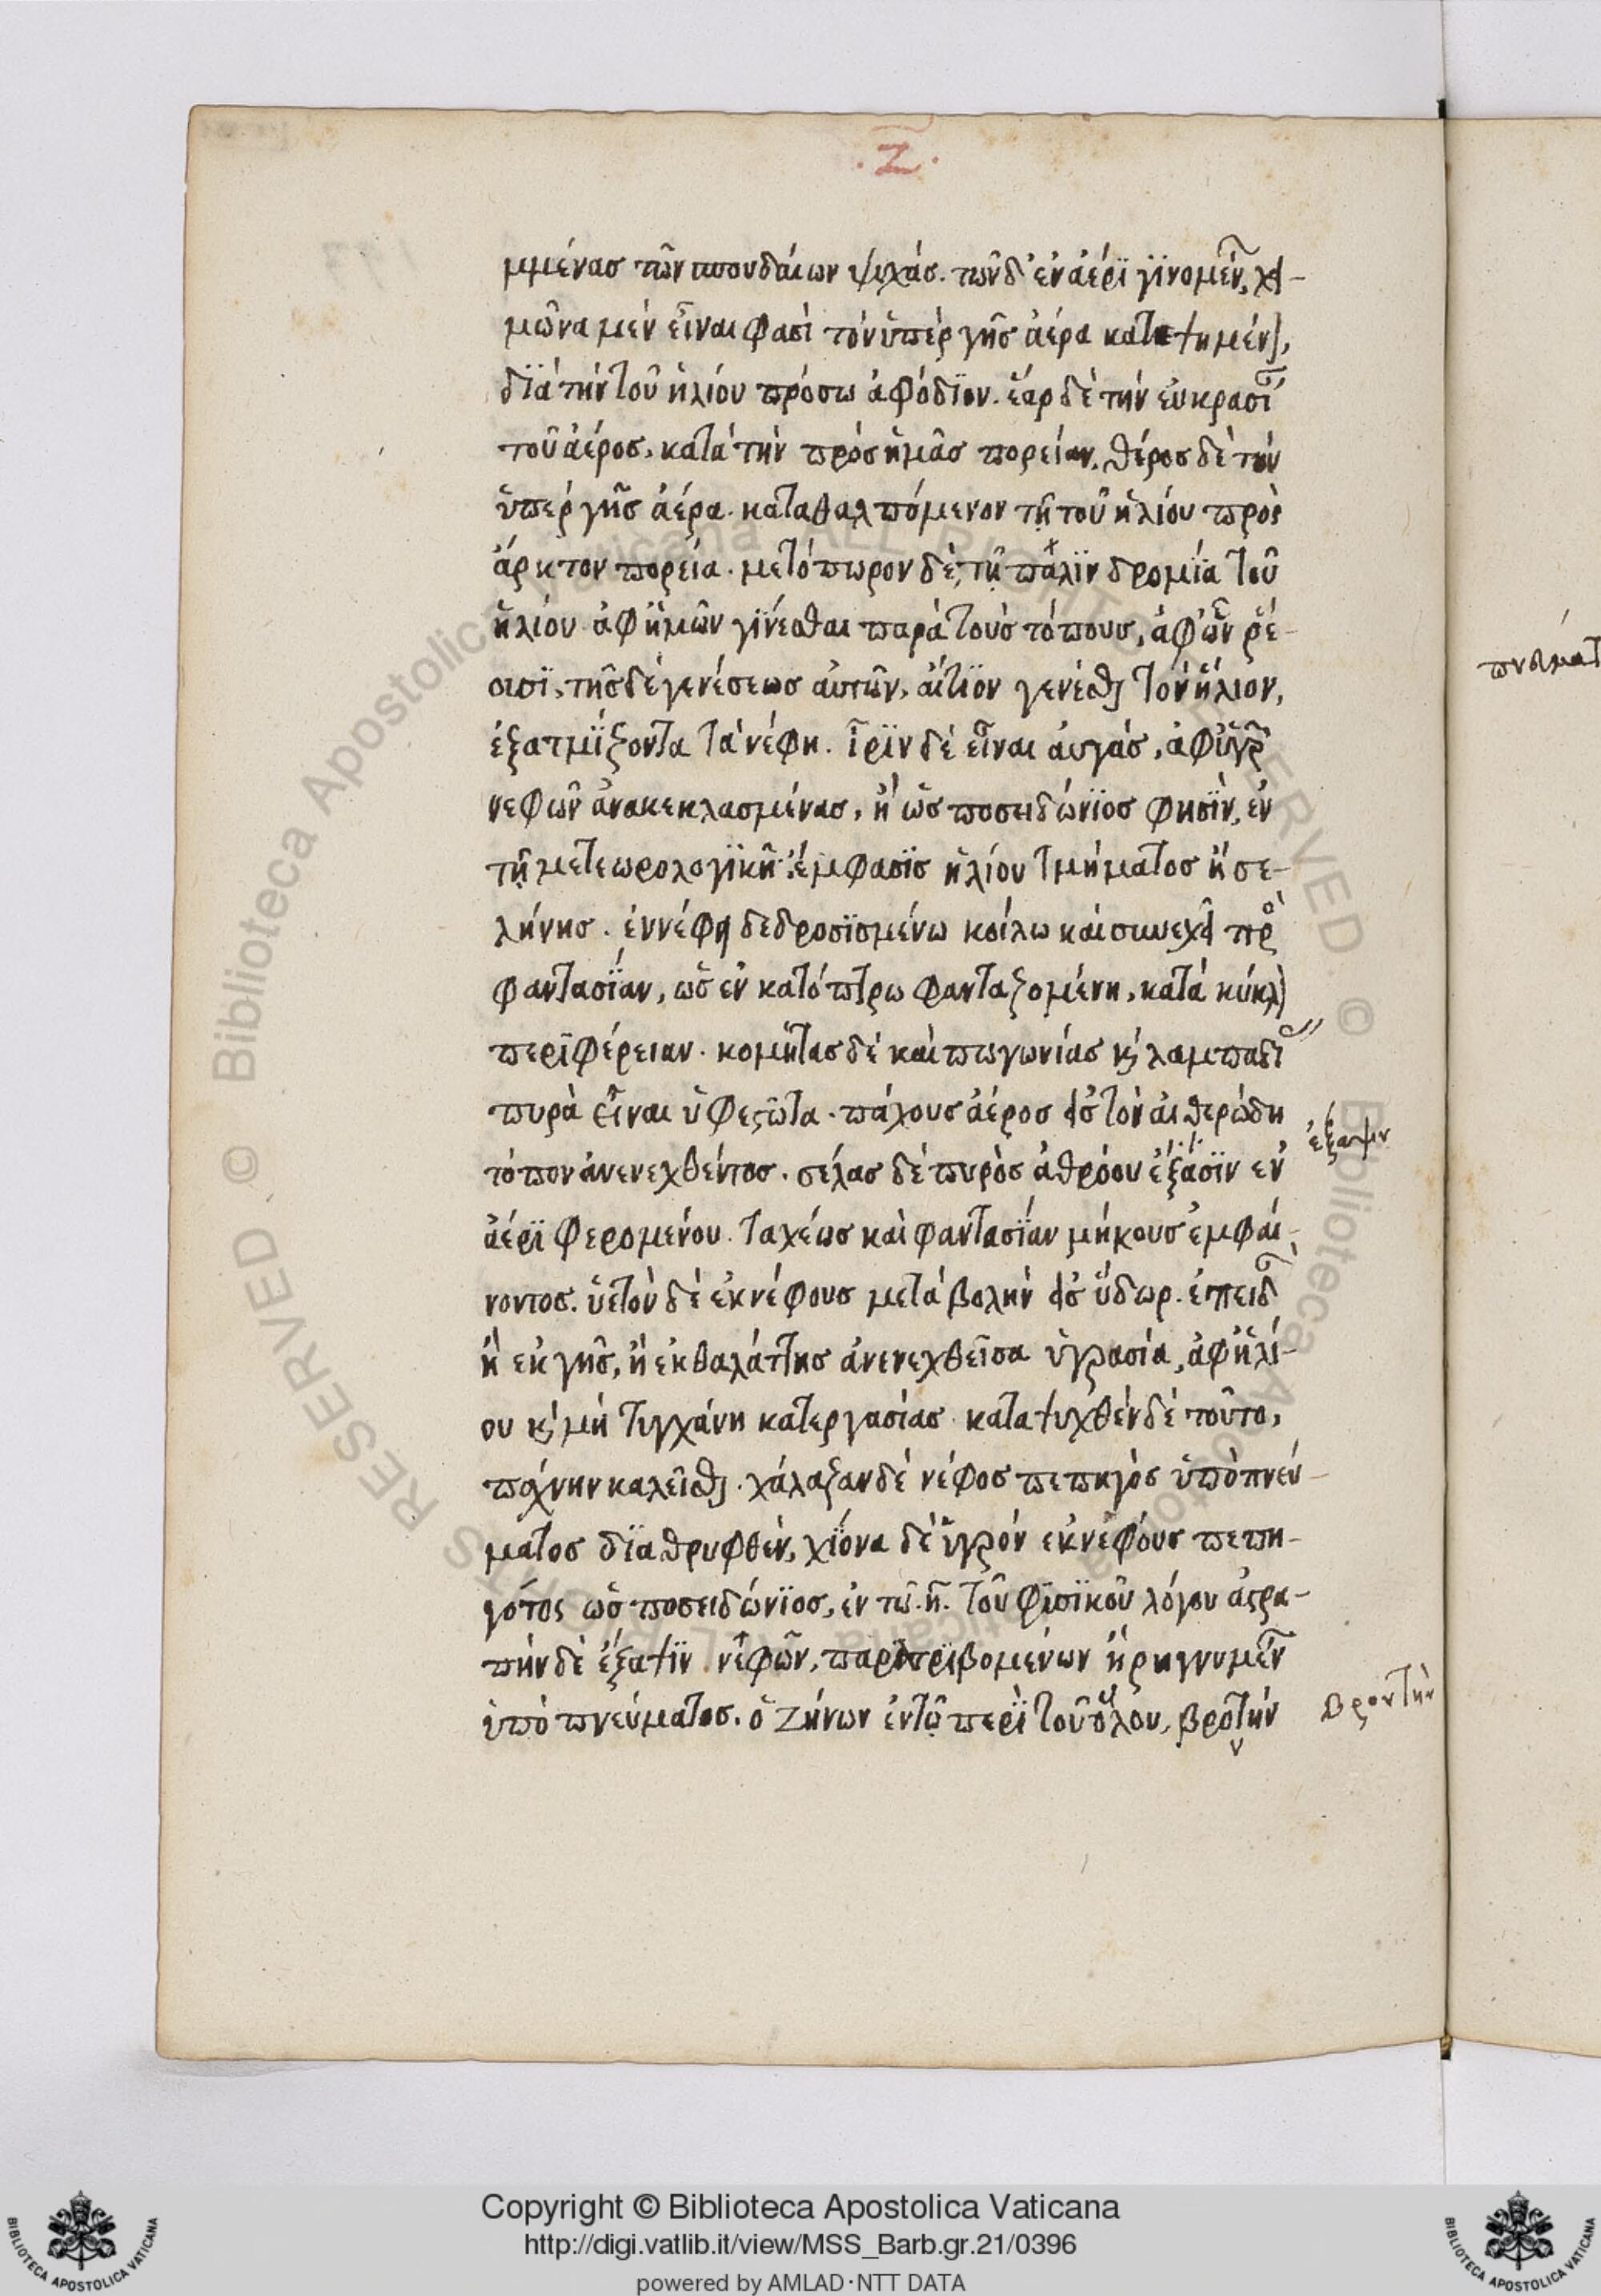 .Ζ.
μμένας τῶν σπουδαίων ψυχάς. τῶν δ' ἐν ἀέρϊ γϊνομένων, χει-
μῶνα μὲν εἶναι φασὶ τὸν ὑπὲρ γῆς ἀέρα κατεψημένον,
δϊὰ τὴν τοῦ ἡλίου πρόσω ἀφόδϊον. ἔαρ δὲ τὴν εὐκρασίαν
τοῦ ἀέρος, κατὰ τὴν πρὸς ἡμᾶς πορείαν, θέρος δὲ τὸν
ὑπὲρ γῆς ἀέρα. καταθαλπόμενον τῇ τοῦ ἡλίου πρὸς
ἄρκτον πορεία. μετόπωρον δὲ, τῇ πάλϊν δρομία τοῦ
ἡλίου ἀφ' ἡμῶν γϊνέσθαι παρὰ τοὺς τόπους, ἀφ' ὧν ῥέ-
ουσϊ, τῆς δὲ γενέσεως αὐτῶν, αἴτϊον γενέσθαι τὸν ἥλιον,
ἐξατμΐζοντα τὰ νέφη. ἶρϊν δὲ εἶναι αὐγὰς, ἀφ' ὑγρῶν
νεφῶν ἀνακεκλασμένας, ἢ ὡς ποσειδώνϊος φησὶν, ἐν
τῇ μετεωρολογϊκῆ. ἔμφασϊς ἡλίου τμήματος ἢ σε-
λήνης. ἐννέφει δεδροσϊσμένω κοίλω καὶ συνεχεῖ πρὸς
φαντασΐαν, ὡς ἐν κατόπτρω φανταζομένη, κατὰ κύκλου
περϊφέρειαν. κομήτας δὲ καὶ πωγωνίας καὶ λαμπαδίας
πυρὰ εἶναι ὑφεστῶτα. πάχους ἀέρος εἰς τὸν αἰθερώδη
τόπον ἀνενεχθέντος. σέλας δὲ πυρὸς ἀθρόου ἐξάσϊν ἐν
ἔξαψιν
ἀέρϊ φερομένου. ταχέως καὶ φαντασΐαν μήκους ἐμφαί-
νοντος. ὑετὸν δὲ ἐκ νέφους μεταβολὴν εἰς ὕδωρ. ἐπειδὰν
ἢ ἐκ γῆς, ἢ ἐκ θαλάττης ἀνενεχθεῖσα ὑγρασία, ἀφ' ἡλί-
ου καὶ μὴ τυγχάνη κατεργασίας. καταψυχθὲν δὲ τοῦτο,
πάχνην καλεῖσθαι. χάλαζαν δὲ νέφος πεπηγὸς ὑπὸ πνεύ-
ματος δϊαθρυφθὲν, χϊόνα δὲ ὑγρὸν ἐκ νέφους πεπη-
γότος ὡς ποσειδώνϊος, ἐν τῶ. η. τοῦ φϊσϊκοῦ λόγου ἀστρα-
πὴν δὲ ἔξαψϊν νεφῶν, παρατρϊβομένων ἢ ῥηγνυμένων
ὑπὸ πνεύματος. ὁ Ζήνων ἐν τῷ περὶ τοῦ ὅλου, βροτὴν
ν
βροντὴν